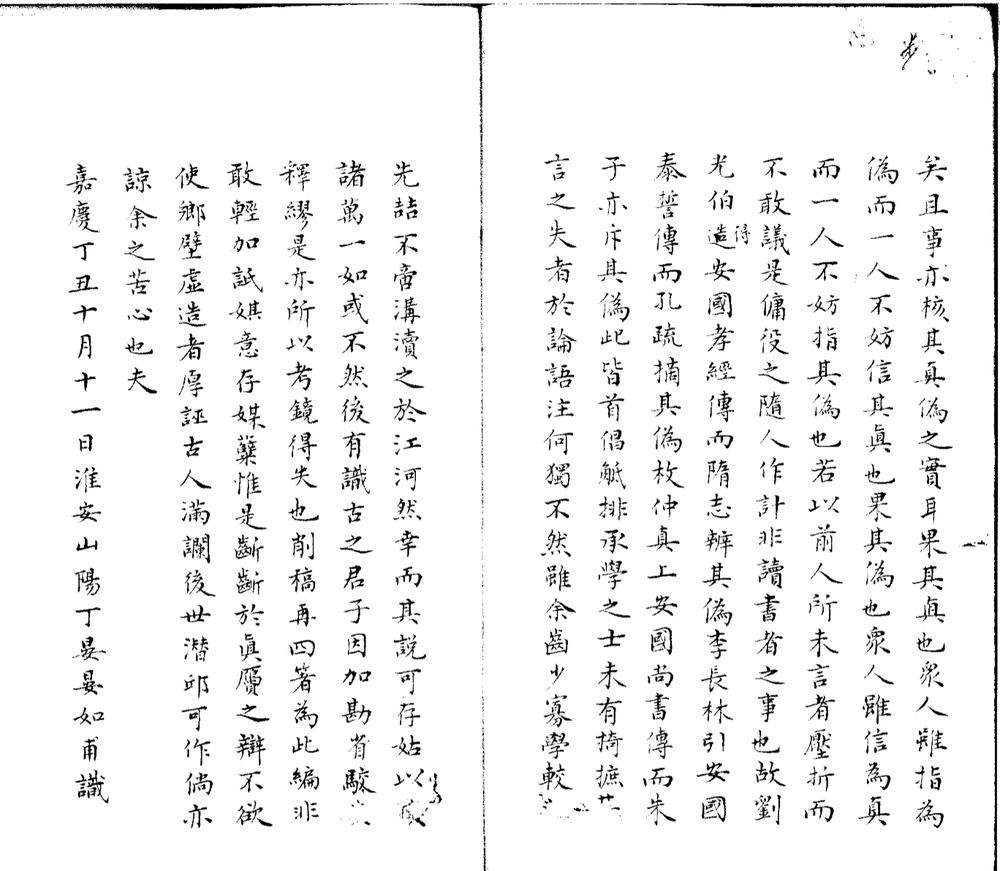 矣且事亦核其真偽之實耳果其真也衆人雖指為
偽而一人不妨信其真也果其偽也衆人雖信為真
而一人不妨指其偽也若以前人所未言者壓折而
不敢議是傭役之隨人作計非讀書者之事也故劉
光伯造得安國孝經傳而隋志辨其偽李長林引安國
泰誓傳而孔疏摘其偽枚仲真上安國尚書傳而朱
子亦斥其偽此皆首倡觝排承學之士未有掎摭
言之失者於論語注何獨不然雖余齒少寡學較
先喆不啻溝瀆之於江河然幸而其說可存姑以
諸萬一如或不然後有識古之君子因加勘省駮
釋繆是亦所以考鏡得失也削稿再四箸為此編非
敢輕加詆娸意存媒櫱惟是斷斷於真贋之辯不欲
使鄉壁虛造者厚誣古人滿讕後世潛邱可作倘亦
諒余之苦心也夫
嘉慶丁丑十月十一日淮安山陽丁晏晏如甫識